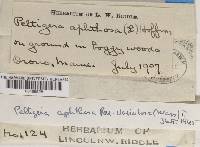 HERBARIUM OF L. W. RIDDLE
Peltigera aphthosa (L) Hoffm
on ground in boggy woods
Orono, Maine. July 1907
Peltigera aphthosa
No. 124 HERBARIUM OF
LINCOLN W. RIDDLE